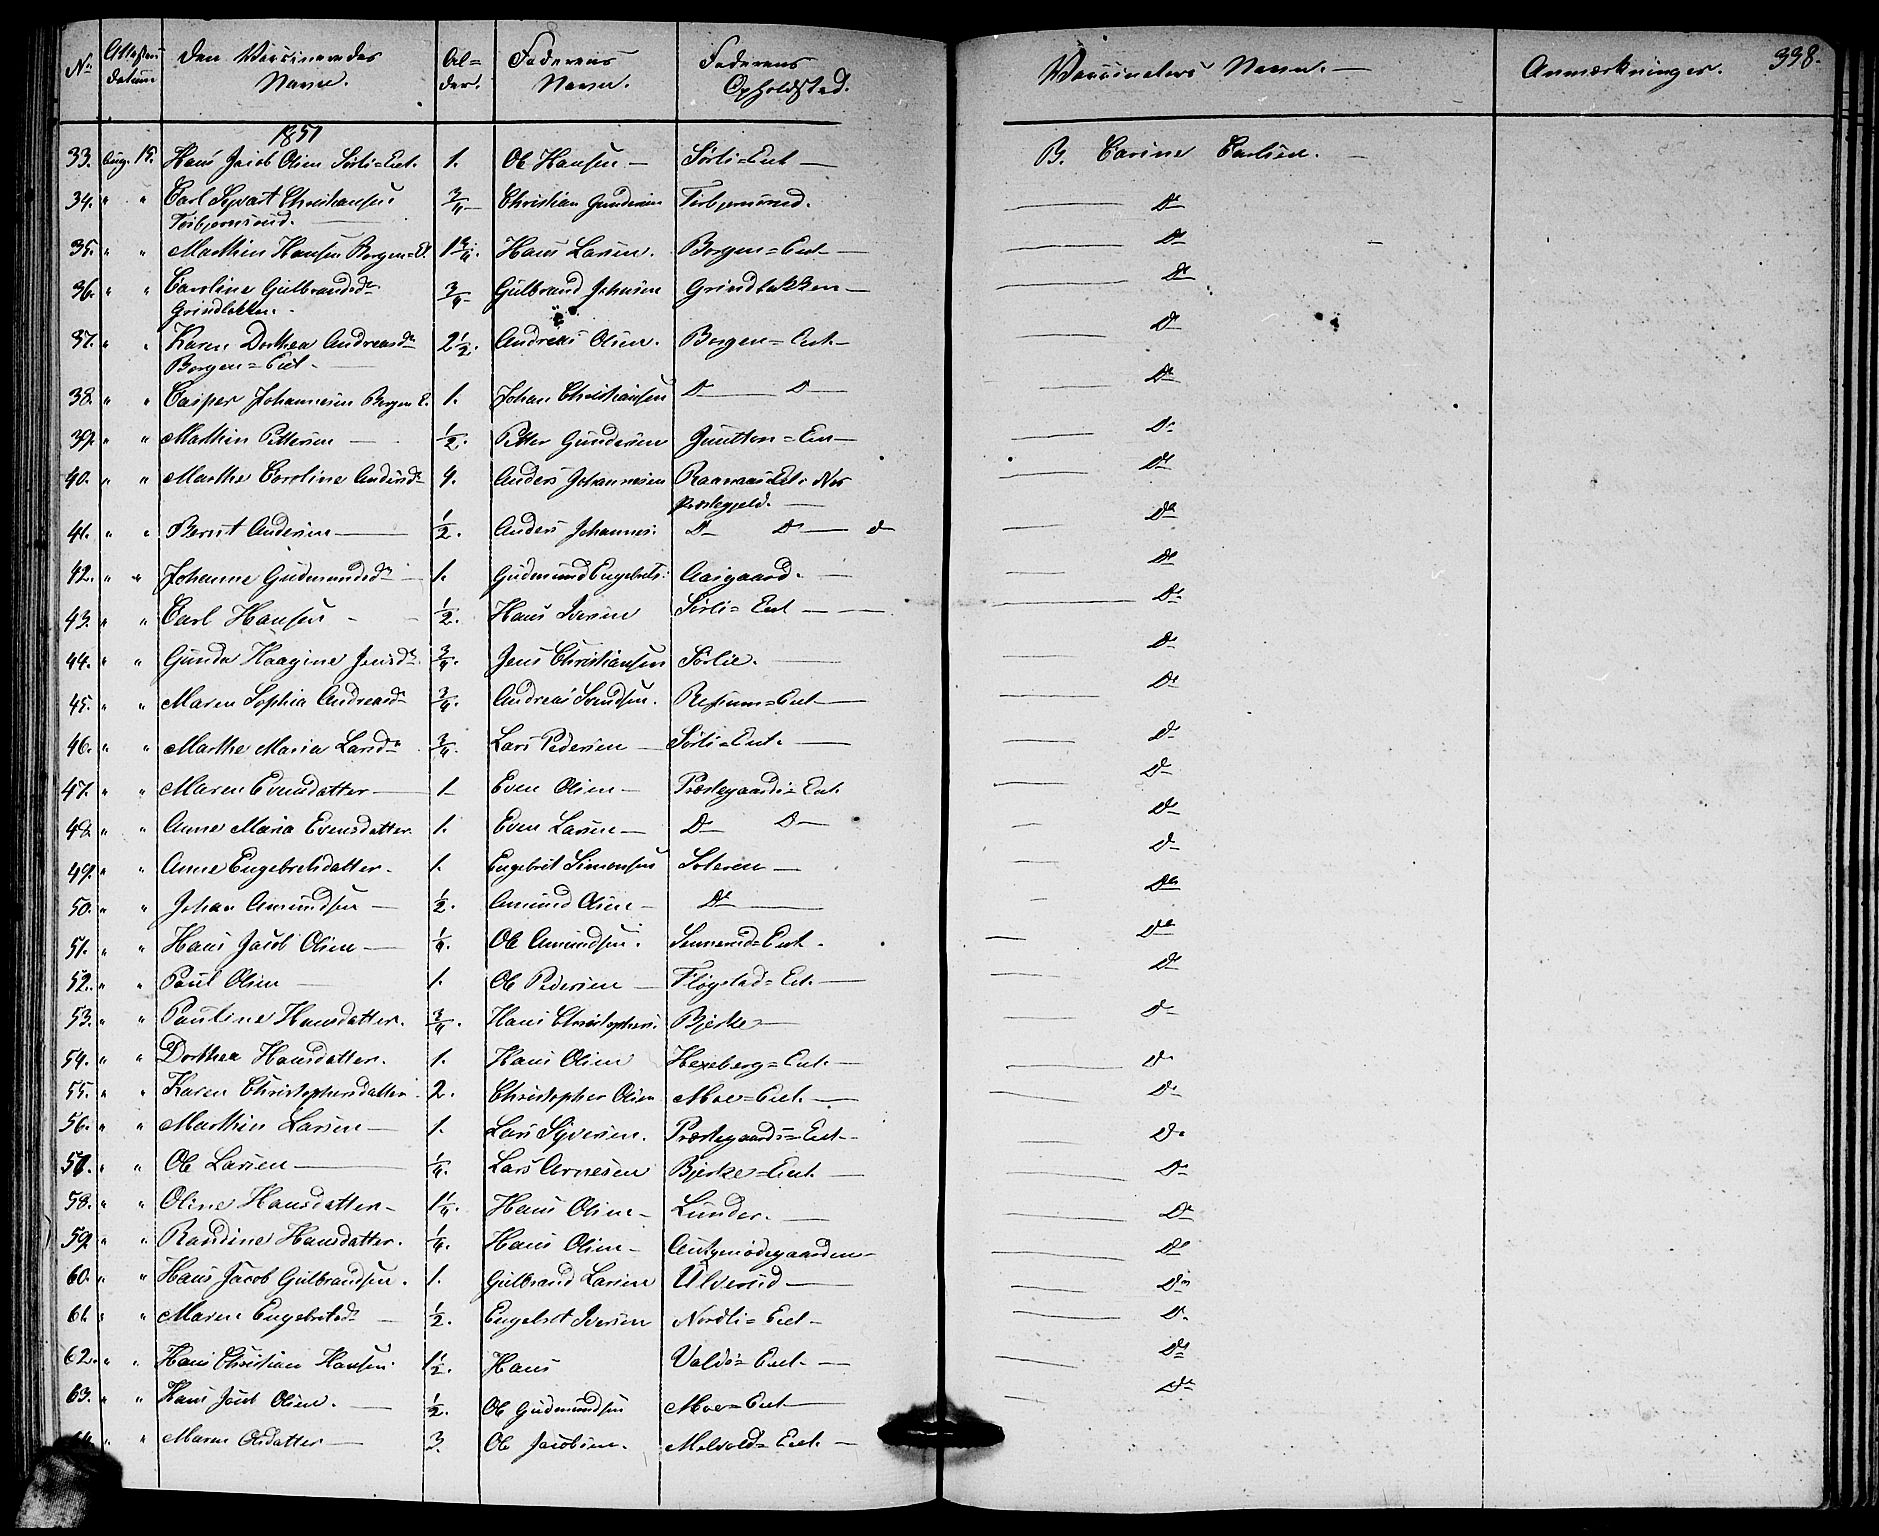 No. Attestens Datum Den Vaccineredes Navn. Alder. Faderens Navn. Faderens Opholdsted. Vaccineters Navn. Anmærkninger. 338.
1851
33. Aug. 15. Hans Jacob Olsen Sørli=Eiet. 1. Ole Hansen — Sørli=Eiet — B. Carine Carlsen. —
34. " " Carl Syvart Christiansen 3/4 Christian Gundersen Torbjørnsrud. D°
Torbjørnsrud.
35. " " Marthin Hansen Borgen=E. 1 3/4. Hans Larsen. Borgen=Eiet — D°
36. " " Caroline Gulbrandsdr 3/4 Gulbrand Johnsen Grindbakken — D°
Grindbakken.
37. " " Karen Dorthea Andreasdr 2 1/2. Andreas Olsen. Borgen=Eiet — D°
Borgen=Eiet —
38. " " Casper Johannesen Borgen E. 1. Johan Christiansen D° — D° — D°
39. " " Marthin Pettersen — 1/2. Petter Gundersen — D°
40. " " Marthe Caroline Andersdr 4. Anders Johannesen Raanaas Eiet i Nes D°
Prestegjeld. —
41. " " Bernt Andersen — 1/2. Anders Johannes: D° D° — D° D°
42. " " Johanne Gudmundsdr 1. Gudmund Engebrets: Aasgaard. — D°
43. " " Carl Hansen — 1/2. Hans Iversen Sørli=Eiet — D°
44. " " Gunda Haagine Jensdr 3/4. Jens Christiansen Sørlie. — D°
45. " " Maren Sophia Andreasdr 3/4. Andreas Svendsen. Risum=Eiet — D°
46. " " Marthe Maria Larsdr 3/4. Lars Pedersen — Sørli=Eiet. — D°
47. " " Maren Evensdatter — 1 Even Olsen — Præstegaards=Eiet D°
48. " " Anne Maria Evensdatter 1. Even Larsen — D° D° — D°
49. " " Anne Engebretsdatter. 1. Engebret Simensen Soteren — D°
50. " " Johan Amundsen — 1/2. Amund Olsen — D° — D°
51. " " Hans Jacob Olsen — 1/4. Ole Amundsen. Eiet. D°
52. " " Paul Olsen — 1. Ole Pedersen — Fløgstad=Eiet. — D°
53. " " Pauline Hansdatter. 3/4. Hans Christophers: Bjerke — D°
54. " " Dorthea Hansdatter. 1. Hans Olsen Hexeberg=Eiet. — D°
55. " " Karen Christophersdatter. 2. Christopher Olsen Moe=Eiet. — D°
56. " " Marthin Larsen — 1. Lars Syversen. Præstegaards=Eiet — D°
57. " " Ole Larsen — 1/4. Lars Arnesen Bjerke=Eiet. D°
58. " " Oline Hansdatter — 1 1/4. Hans Olsen — Lunder. — D°
59. " " Randine Hansdatter. 1/4. Hans Olsen — D°
60. " " Hans Jacob Gulbrandsen. 1. Gulbrand Larsen Ulverud — D°
61. " " Maren Engebretsdr — 1/2. Engebret Iversen Nordli=Eiet — D°
62. " " Hans Christian Hansen. 1 1/2. Hans Valds=Eiet — D°
63. " " Hans Jacob Olsen. — 1/2. Ole Gudmundsen Moe=Eiet — D°
64. " " Maren Olsdatter — 3. Ole Jacobsen. Melvold=Eiet. —